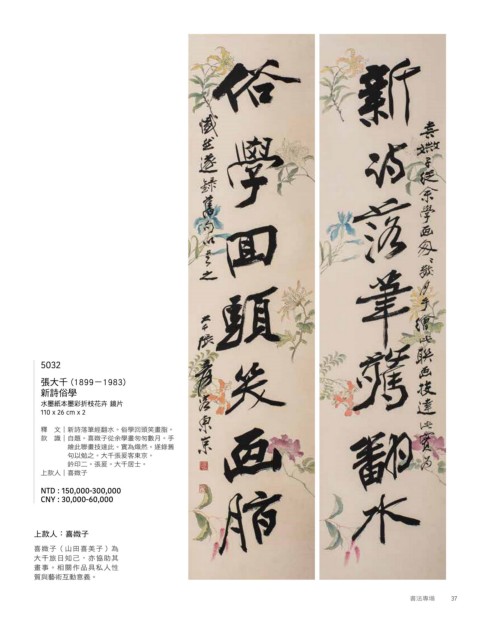 新詩落筆驚翻水
喜㜫子從余學畫匆匆數月手繪此聯畫技達此實為
俗學回頭笑畫脂
慽然遂錄舊句以勉之
大千張爰客東京
5032
張大千（1899－1983）
新詩俗學
水墨紙本墨彩折枝花卉 鏡片
110 x 26 cm x 2
釋　文｜新詩落筆經翻水，俗學回頭笑畫脂。
款　識｜自題，喜㜫子從余學畫匆匆數月，手
繪此聯畫技達此，實為熾然，遂錄舊
句以勉之，大千張爰客東京。
鈐印二，張爰，大千居士。
上款人｜喜㜫子
NTD : 150,000-300,000
CNY : 30,000-60,000
上款人：喜㜫子
喜㜫子（山田喜美子）為
大千旅日知己，亦協助其
畫事，相關作品具私人性
質與藝術互動意義。
書法專場　37